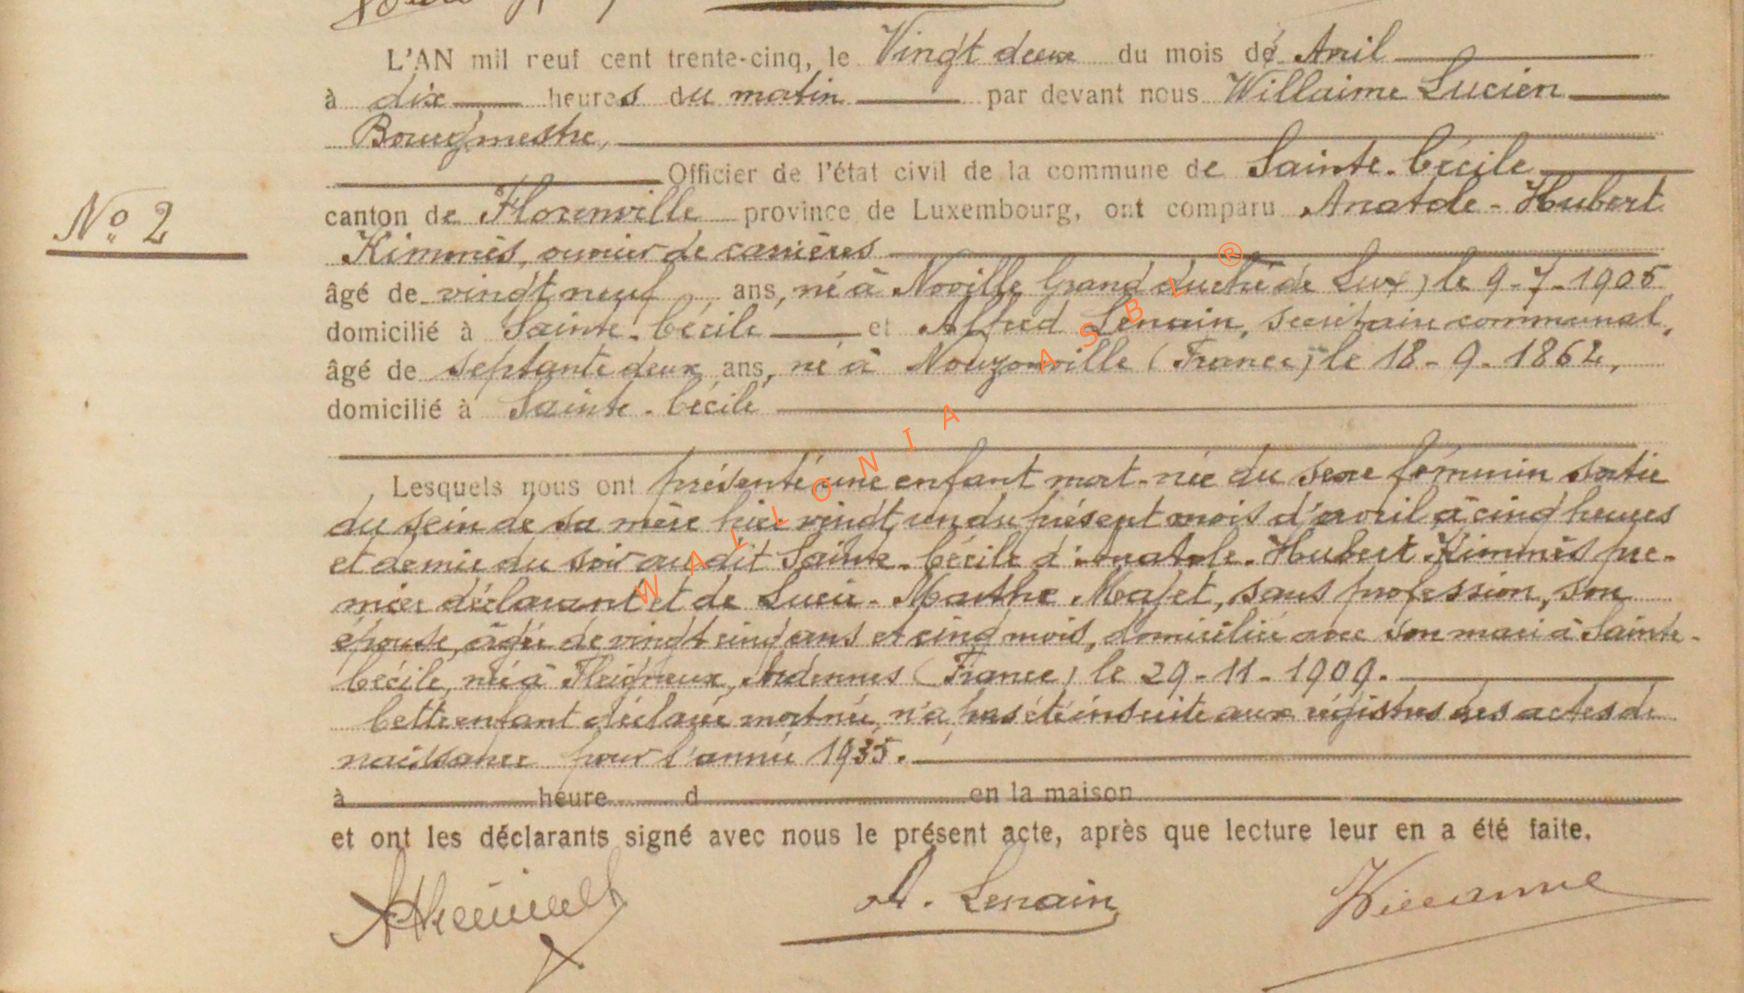 L'AN mil neuf cent trente-cinq, le Vingt deux du mois de Avril
à dix heures du matin par devant nous Willaime Lucien
Bourgmestre,
Officier de l'état civil de la commune de Sainte-Cécile
N° 2
canton de Florenville province de Luxembourg, ont comparu Anatole-Hubert
Kimmès, ouvrier de carrières
âgé de vingt neuf ans, né à Noville Grand duché de Lux) le 9-7-1905
domicilié à Sainte-Cécile et Alfred Lenain, secrétaire communal,
âgé de septante deux ans, né à Nouzonville (France) le 18-9-1862,
domicilié à Sainte-Cécile
Lesquels nous ont présenté une enfant mort-née du sexe féminin sortie
du sein de sa mère hier vingt un du présent mois d'avril à cinq heures
et demie du soir audit Sainte-Cécile d'Anatole-Hubert Kimmès pre-
mier déclarant et de Lucie-Marthe Majet, sans profession, son
épouse, âgée de vingt cinq ans et cinq mois, domiciliée avec son mari à Sainte-
Cécile, née à Fleigneux, Ardennes (France) le 29-11-1909.
Cette enfant déclarée mortnée, n'a pas été inscrite aux régistres des actes de
naissance pour l'année 1935.
à heure d en la maison
et ont les déclarants signé avec nous le présent acte, après que lecture leur en a été faite.
A. Lenain
WALLONIA ASBL ®